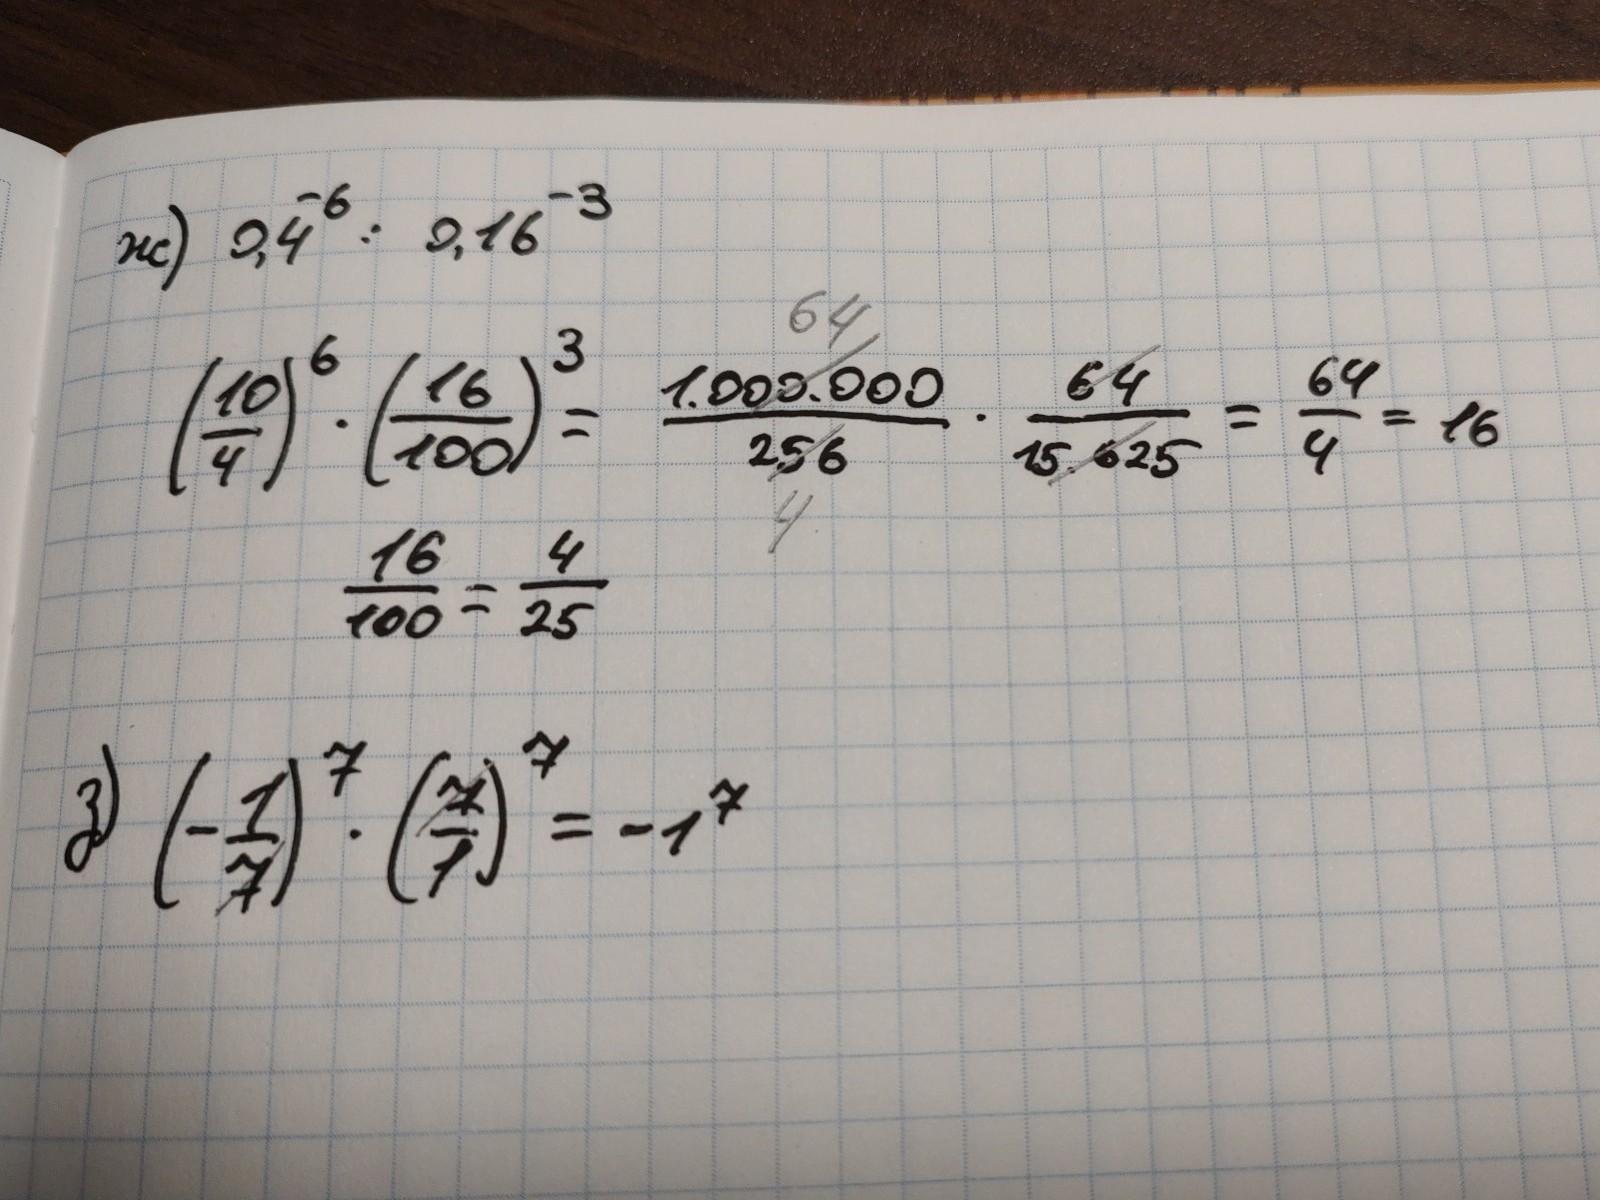 ж) 0,4^-6 : 0,16^-3
(10/4)^6 · (16/100)^3 = 1.000.000/256 · 64/15.625 = 64/4 = 16
64
4
16/100 = 4/25
з) (-1/7)^7 · (7/1)^7 = -1^7